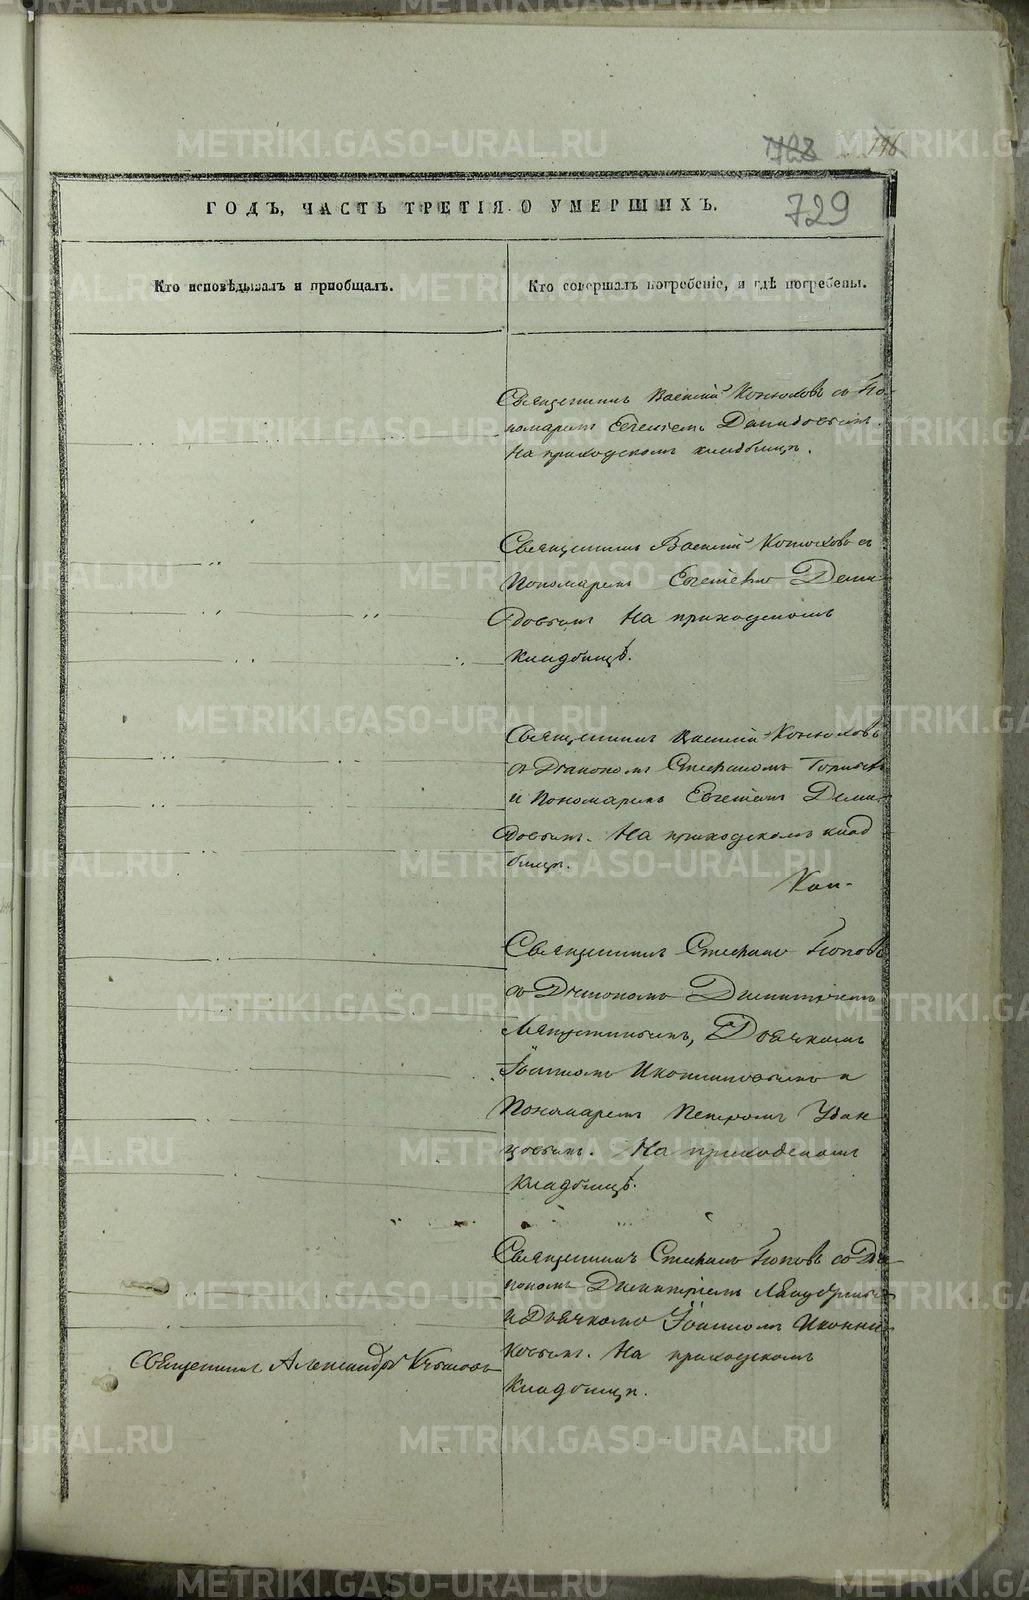 728 196
ГОДЪ, ЧАСТЬ ТРЕТІЯ О УМЕРШИХЪ.
729
Кто исповѣдывалъ и пріобщалъ.
Кто совершалъ погребеніе, и гдѣ погребены.
Священникъ Василій Конюховъ съ По-
номаремъ Евгеніемъ Демидовымъ.
На приходскомъ кладбищѣ.
Священникъ Василій Конюховъ съ
Пономаремъ Евгеніемъ Деми-
довымъ На приходскомъ
кладбищѣ.
Священникъ Василій Конюховъ
съ Діакономъ Стефаномъ
и Пономаремъ Евгеніемъ Деми-
довымъ. На приходскомъ клад
бищѣ.
Священникъ Стефанъ Поповъ
съ Діакономъ Димитріемъ
Дьячкомъ
Іоанномъ Иконниковымъ и
Пономаремъ Петромъ Удин
цовымъ. На приходскомъ
кладбищѣ.
Священникъ Стефанъ Поповъ со Діа-
кономъ Димитріемъ
и Дьячкомъ Іоанномъ Иконни-
ковымъ. На приходскомъ
кладбищѣ.
Священникъ Александръ
METRIKI.GASO-URAL.RU